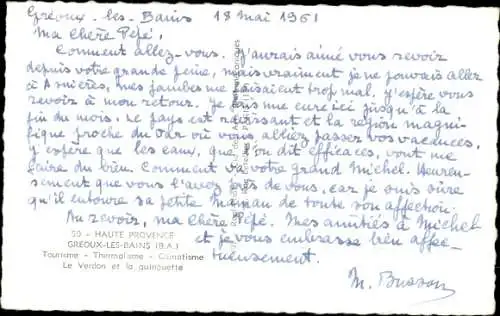 Gréoux-les-Bains 18 mai 1961
Ma Chère Pépé,
Comment allez-vous. J'aurais aimé vous revoir
depuis votre grande peine, mais vraiment je ne pouvais aller
à Asnières, mes jambes me faisaient trop mal. J'espère vous
revoir à mon retour. Je fais une cure ici jusqu'à la
fin du mois. Le pays est ravissant et la région magni-
fique proche du Var où vous alliez passer vos vacances.
J'espère que les eaux, que l'on dit efficaces, vont me
faire du bien. Comment va votre grand Michel. Heureu-
sement que vous l'avez près de vous, car je suis sûre
qu'il entoure sa petite Maman de toute son affection.
Au revoir, ma Chère Pépé. Mes amitiés à Michel
et je vous embrasse bien affec-
tueusement.
M. Busson
50 - HAUTE PROVENCE
GREOUX-LES-BAINS (B.A.)
Tourisme - Thermalisme - Climatisme
Le Verdon et la guinguette